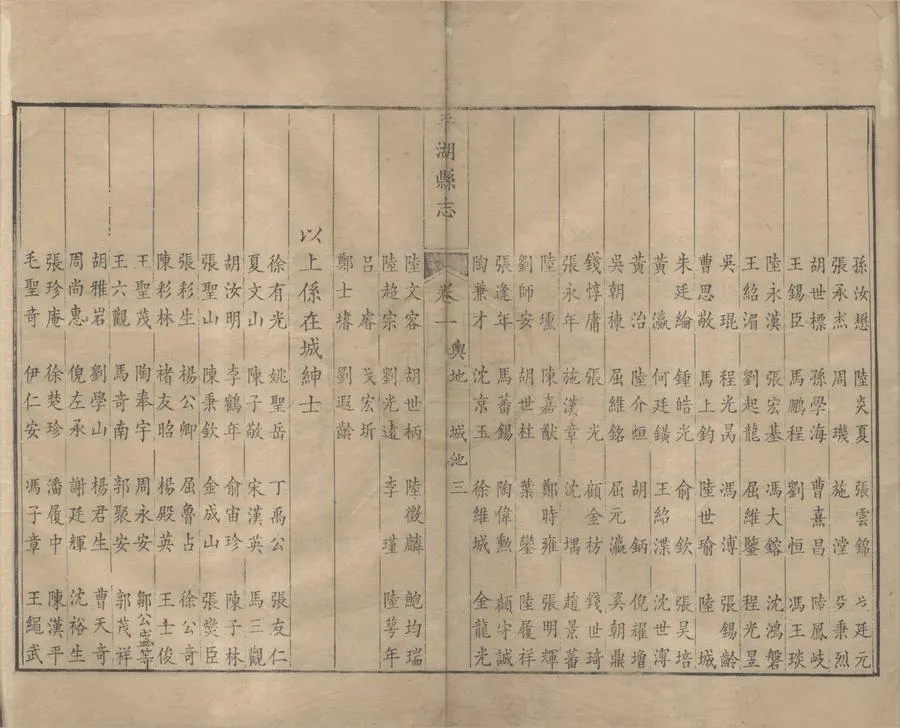 孫汝懋 陸炎夏 張雲錦 廷元
張承杰 周璣 施瀅 秉烈
胡世標 孫學海 曹熹昌 陸鳳岐
王錫臣 馬鵬程 劉恒 馮王琰
陸永漢 張宏基 馮大鎔 沈鴻磐
王紹湄 劉起龍 屈維鑒 程光昱
吳琨 程光昺 馮溥 張錫齡
曹思敬 馬上鈞 陸世瑜 陸城
朱廷綸 鍾皓光 俞欽 張吳培
黃瀛 何廷鐄 王紹渫 沈世溥
黃治 陸介恒 胡鈵 倪耀增
吳朝棟 屈維銘 屈元瀛 奚朝鼎
錢惇庸 張光 顧金枋 錢世琦
張永年 施漢章 沈堣 趙景蕃
陸壎 陳嘉猷 鄭時雍 張明輝
劉師安 胡世杜 葉鑾 陸履祥
張逢年 馬蕃錫 陶偉勲 顧守誠
陶兼才 沈京玉 徐維城 金龍光
平湖縣志 卷一 輿地 城池 三
陸文容 胡世柄 陸徵麟 鮑均瑞
陸超宗 劉光遠 李瑾 陸蕚年
呂睿 戈宏圻
鄭士璿 劉遐齡
以上係在城紳士
徐有光 姚聖岳 丁禹公 張友仁
夏文山 陳子敬 宋漢英 馬三觀
胡汝明 李鶴年 俞宙珍 陳子林
張聖山 陳秉欽 金成山 張爕臣
張彩生 楊公卿 屈魯占 徐公奇
陳彩林 褚友昭 楊殿英 王士俊
王聖茂 陶奉宇 周永安 鄒公盛等
王六觀 馬奇南 郭聚安 郭茂祥
胡雅岩 劉學山 楊君生 曹天奇
周尚惠 倪左承 謝廷輝 沈裕生
張珍庵 徐楚珍 潘履中 陳漢平
毛聖奇 伊仁安 馮子章 王繩武